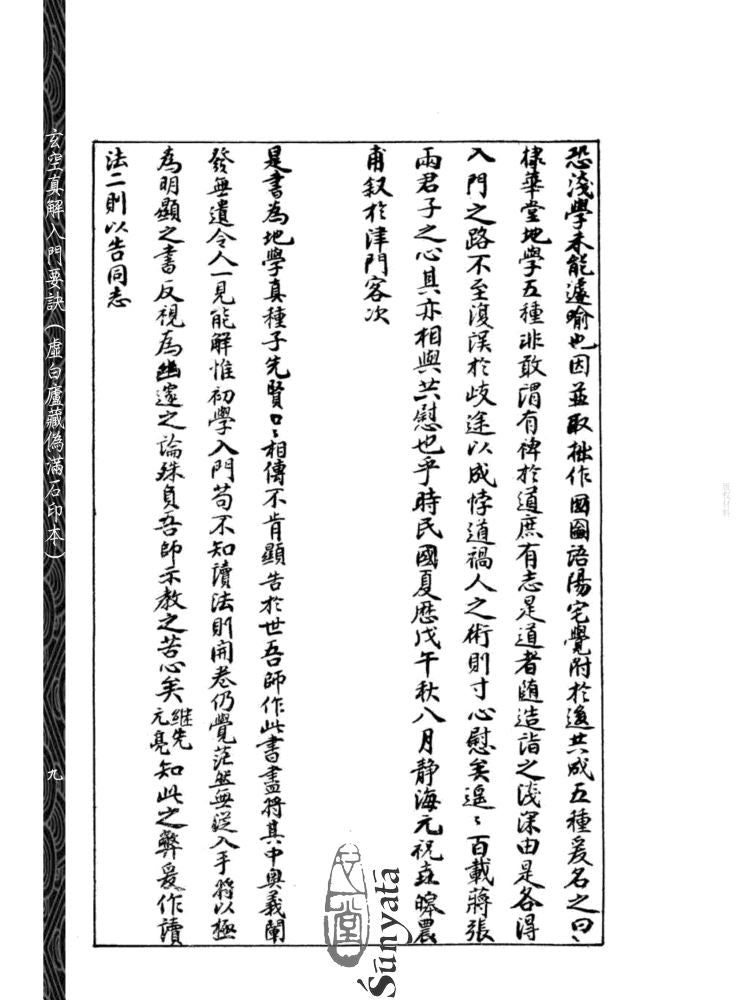 恐淺學未能遽喻也因並取拙作國圖語陽宅覺附於後共成五種爰名之曰〻
棣華堂地學五種非敢謂有裨於道庶有志是道者随造詣之淺深由是各得
入門之路不至復誤於歧途以成悖道禍人之術則寸心慰矣遥〻百載蔣張
兩君子之心其亦相與共慰也乎時民國夏厯戊午秋八月静海元祝垚皞農
甫叙於津門客次
是書為地學真種子先賢口〻相傳不肯顯告於世吾師作此書盡將其中奥義闡
發無遺令人一見能解惟初學入門苟不知讀法則開卷仍覺茫然無從入手將以極
為明顯之書反視為幽邃之論殊負吾師示教之苦心矣繼先元亮知此之弊爰作讀
法二則以告同志
玄空真解入門要訣(虛白廬藏偽滿石印本)
九
心一堂
Śūnyatā
版权材料